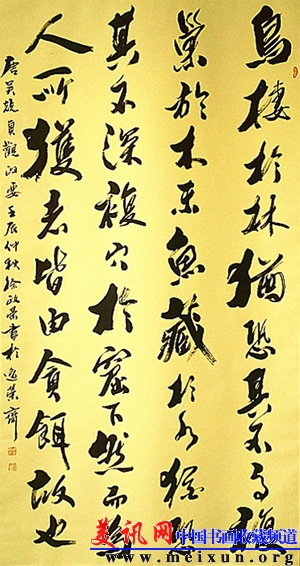 鳥棲於林猶恐其不高複
巢於木末魚藏於水猶恐
其不深複穴於窟下然而為
人所獲者皆由貪餌故也
唐吳兢貞觀政要壬辰仲秋徐政榮書於逸榮齋
美讯网 中国书画收藏频道
www.meixun.org